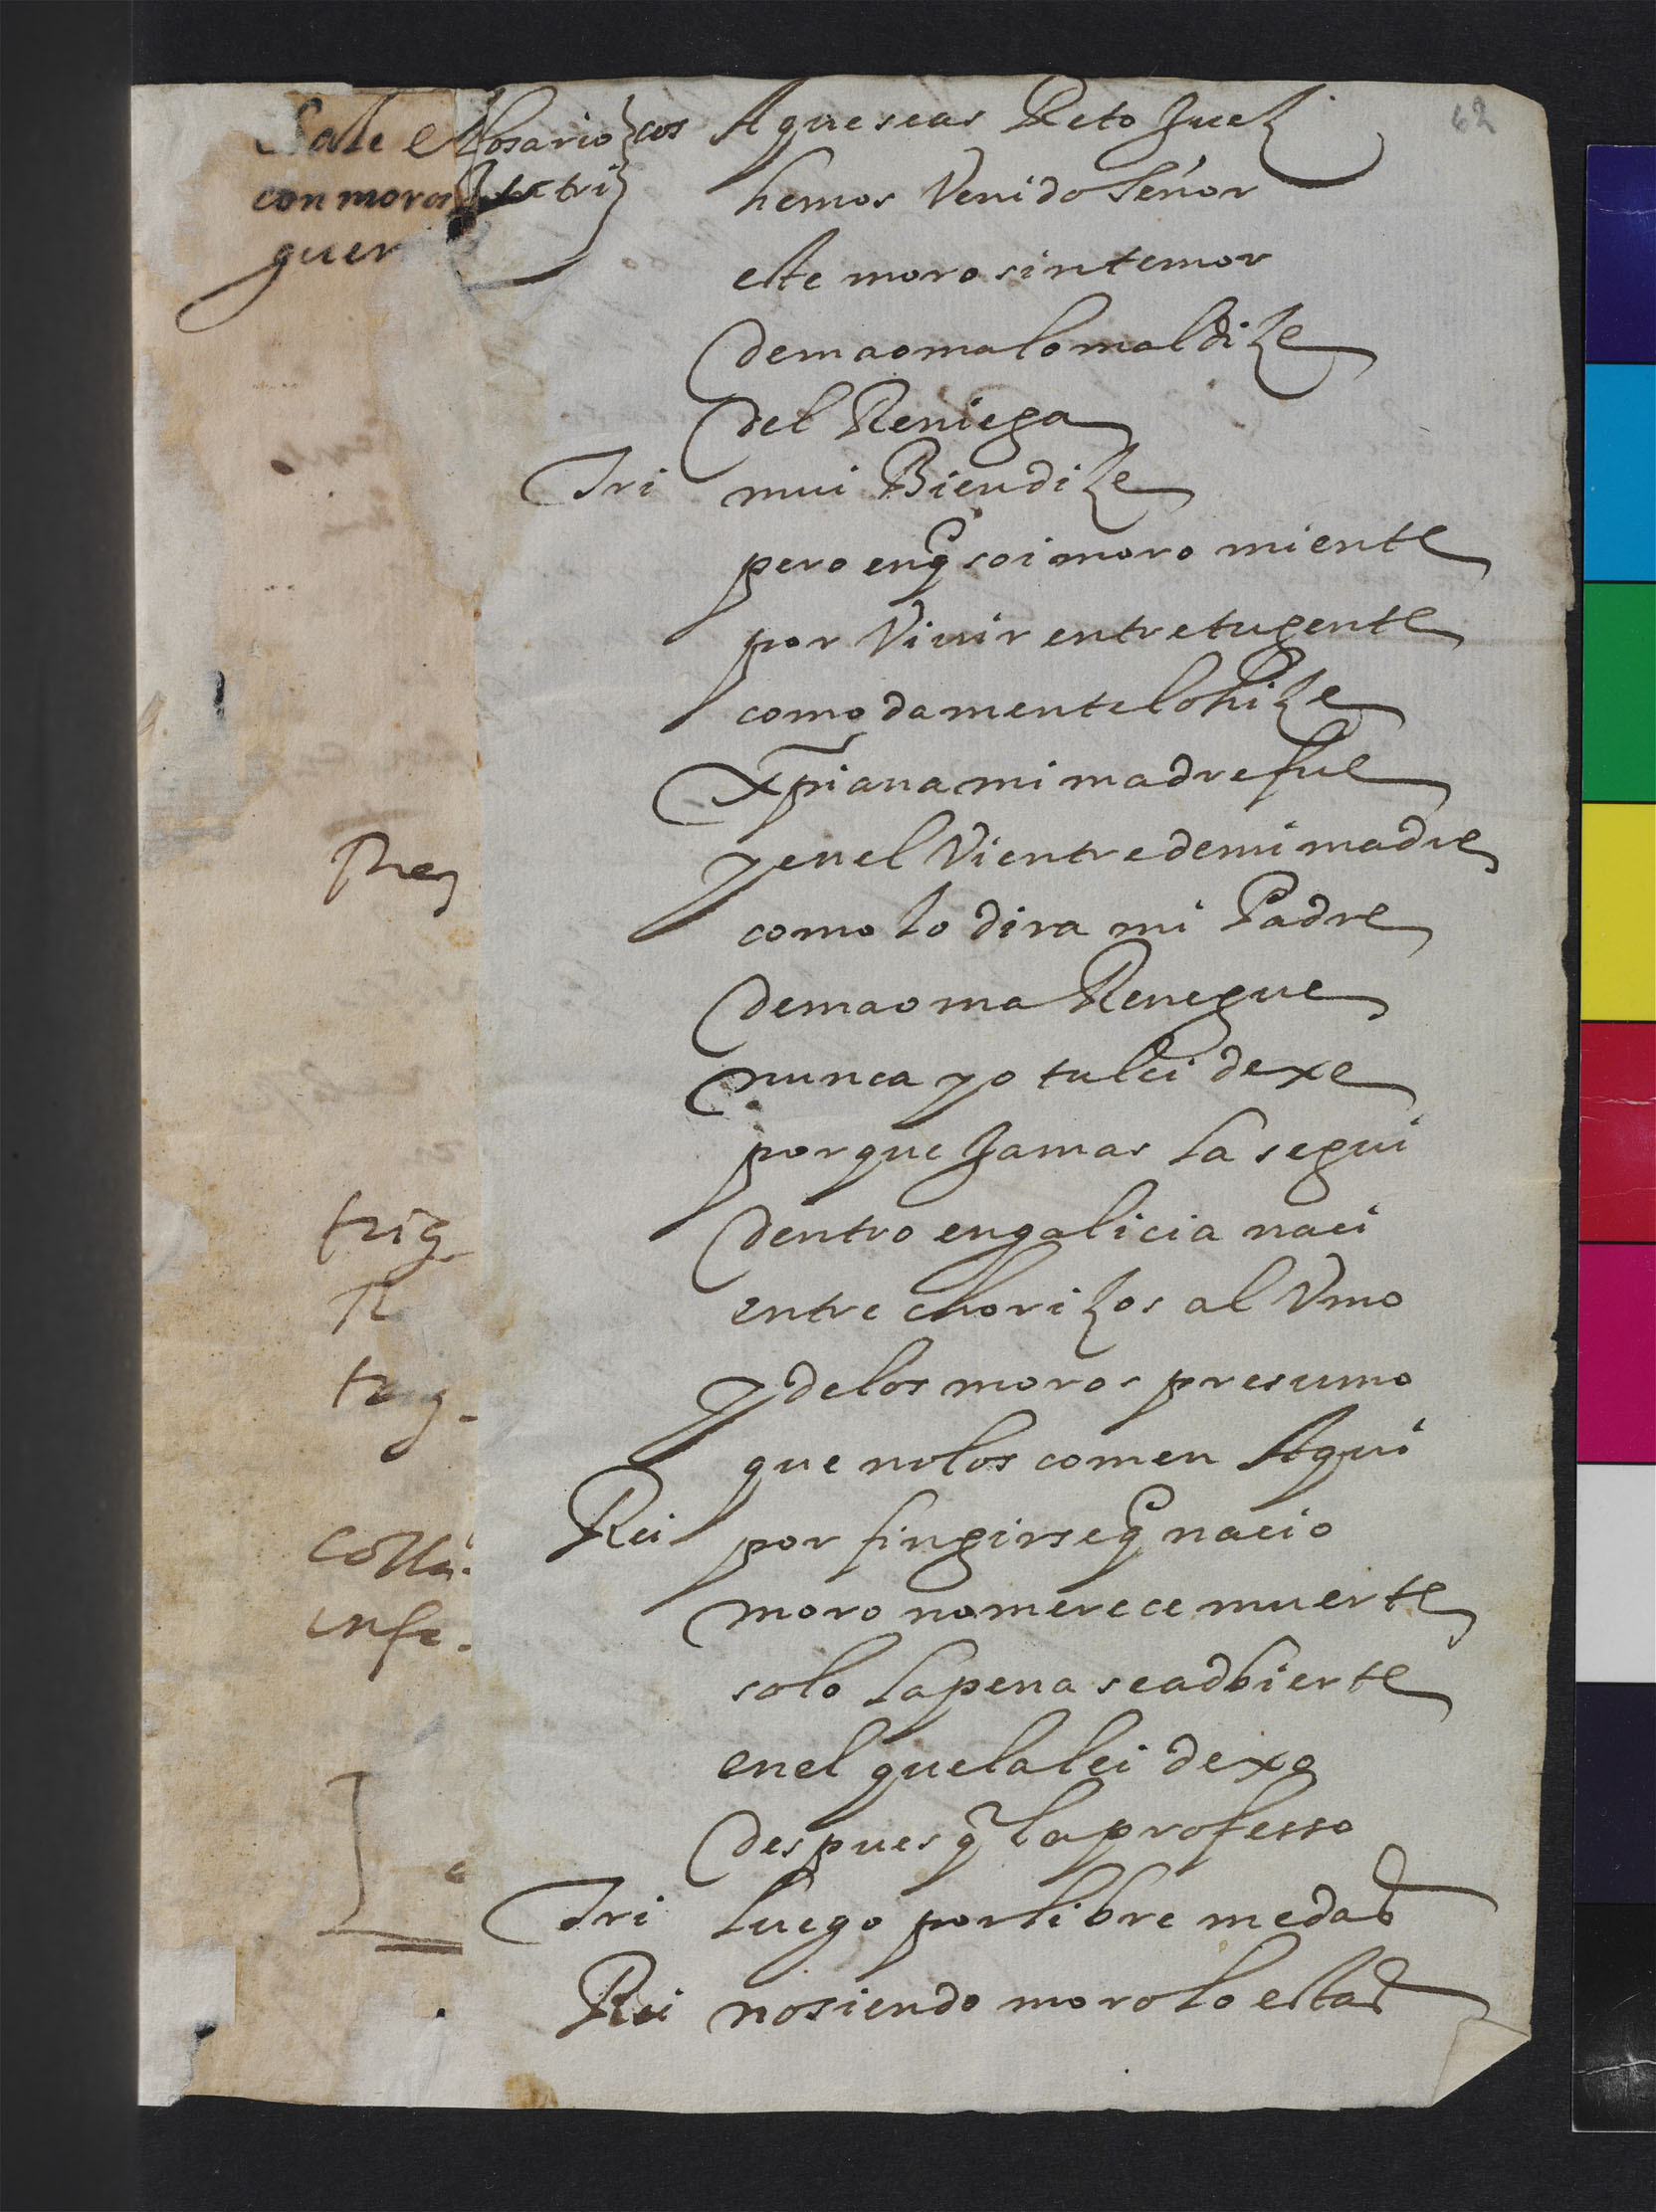 62
Sale el Cosario cos A que seas Reto Juez
con moros y tri hemos Venido señor
guer este moro sin temor
de maoma lo maldize
del Reniega
Tri mui Bien dize
pero en q̃ soi moro miente
por Viuir entre tu gente
comodamente lo hize
xp̃iana mi madre fue
y en el Vientre de mi madre
como lo dira mi Padre
de maoma Renegue
nunca yo tu lei dexe
porque Jamas la segui
dentro en galicia naci
entre chorizos al Vmo
y de los moros presumo
que no los comen Aqui
Rei por fingirse q̃ nacio
moro no merece muerte
solo la pena se adbierte
en el que la lei dexo
despues q̃ la professo
Tri luego por libre me das
Rei no siendo moro lo estas